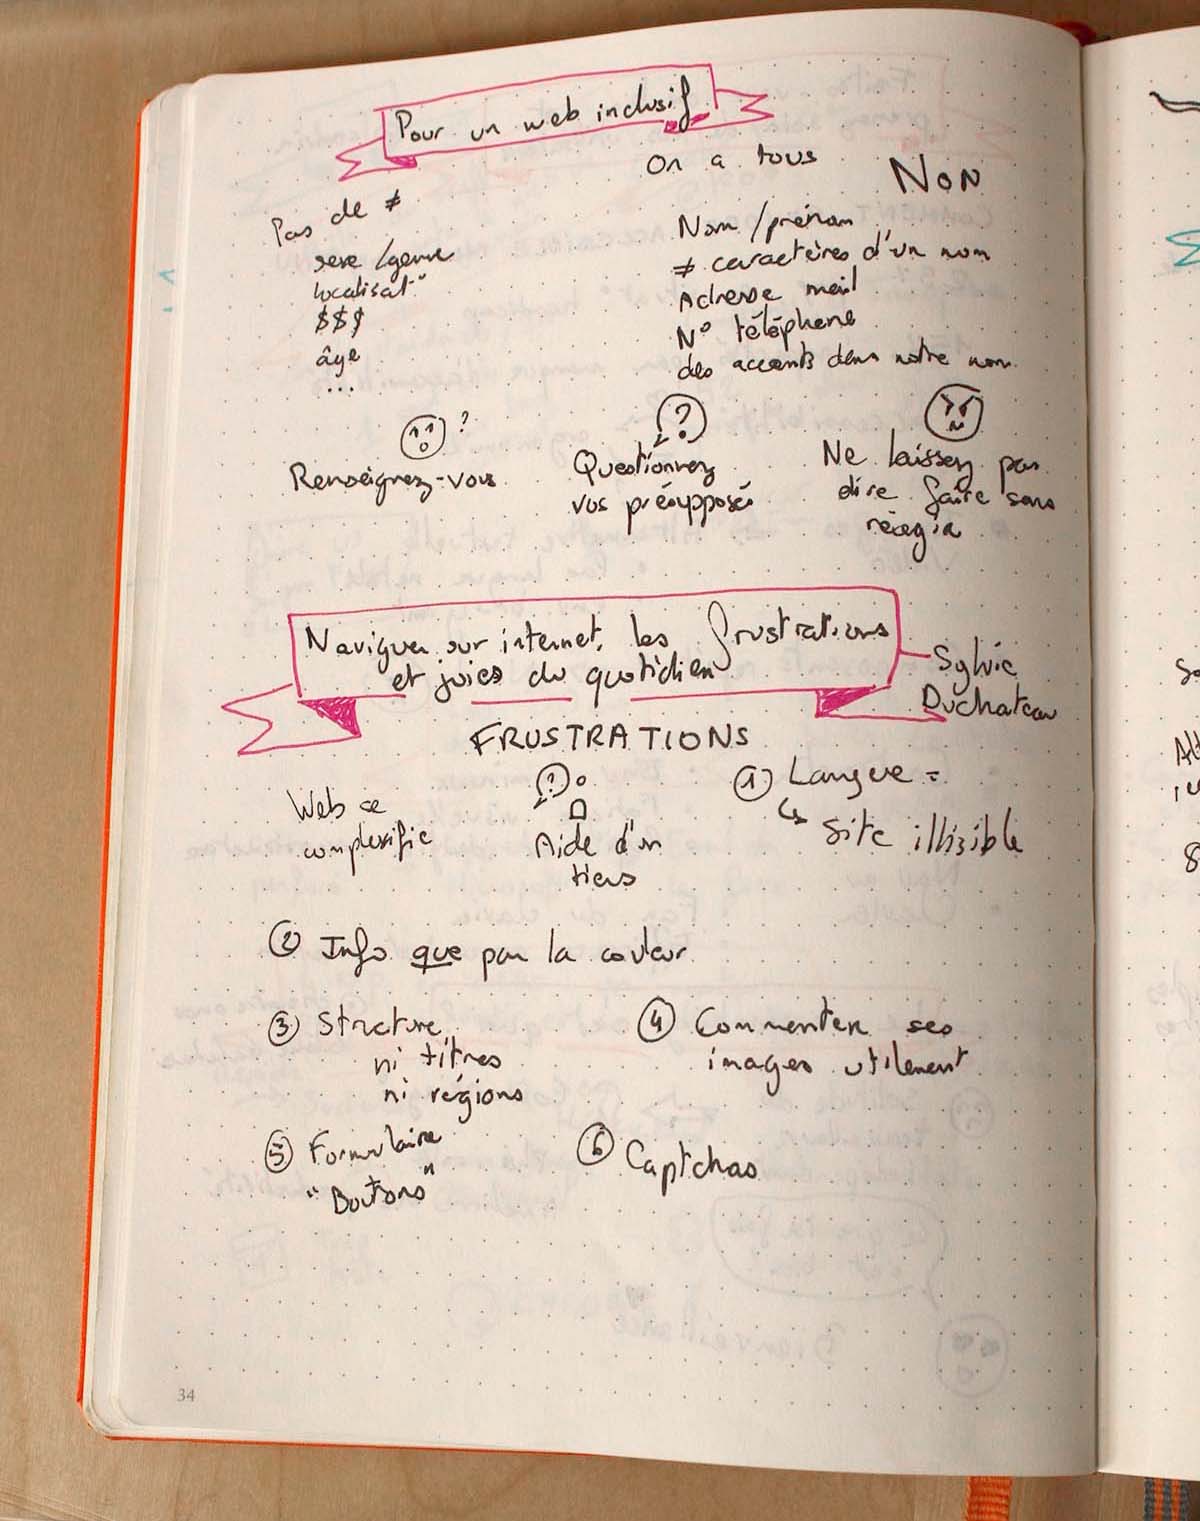 Pour un web inclusif
On a tous
NON
Pas de ≠
sexe/genre
localisat°
$$$
âge
...
Nom/prénom
≠ caractères d'un nom
Adresse mail
N° téléphone
des accents dans notre nom
?
Renseignez-vous
?
Questionnez
vos présupposés
Ne laissez pas
dire faire sans
réagir
Naviguer sur internet, les frustrations
et joies du quotidien
Sylvie
Duchateau
FRUSTRATIONS
Web se
complexifie
?
Aide d'un
tiers
① Langue =
↳ Site illisible
② Info que par la couleur
③ Structure
ni titres
ni régions
④ Commenter ses
images utilement
⑤ Formulaire
"Boutons"
⑥ Captchas
34